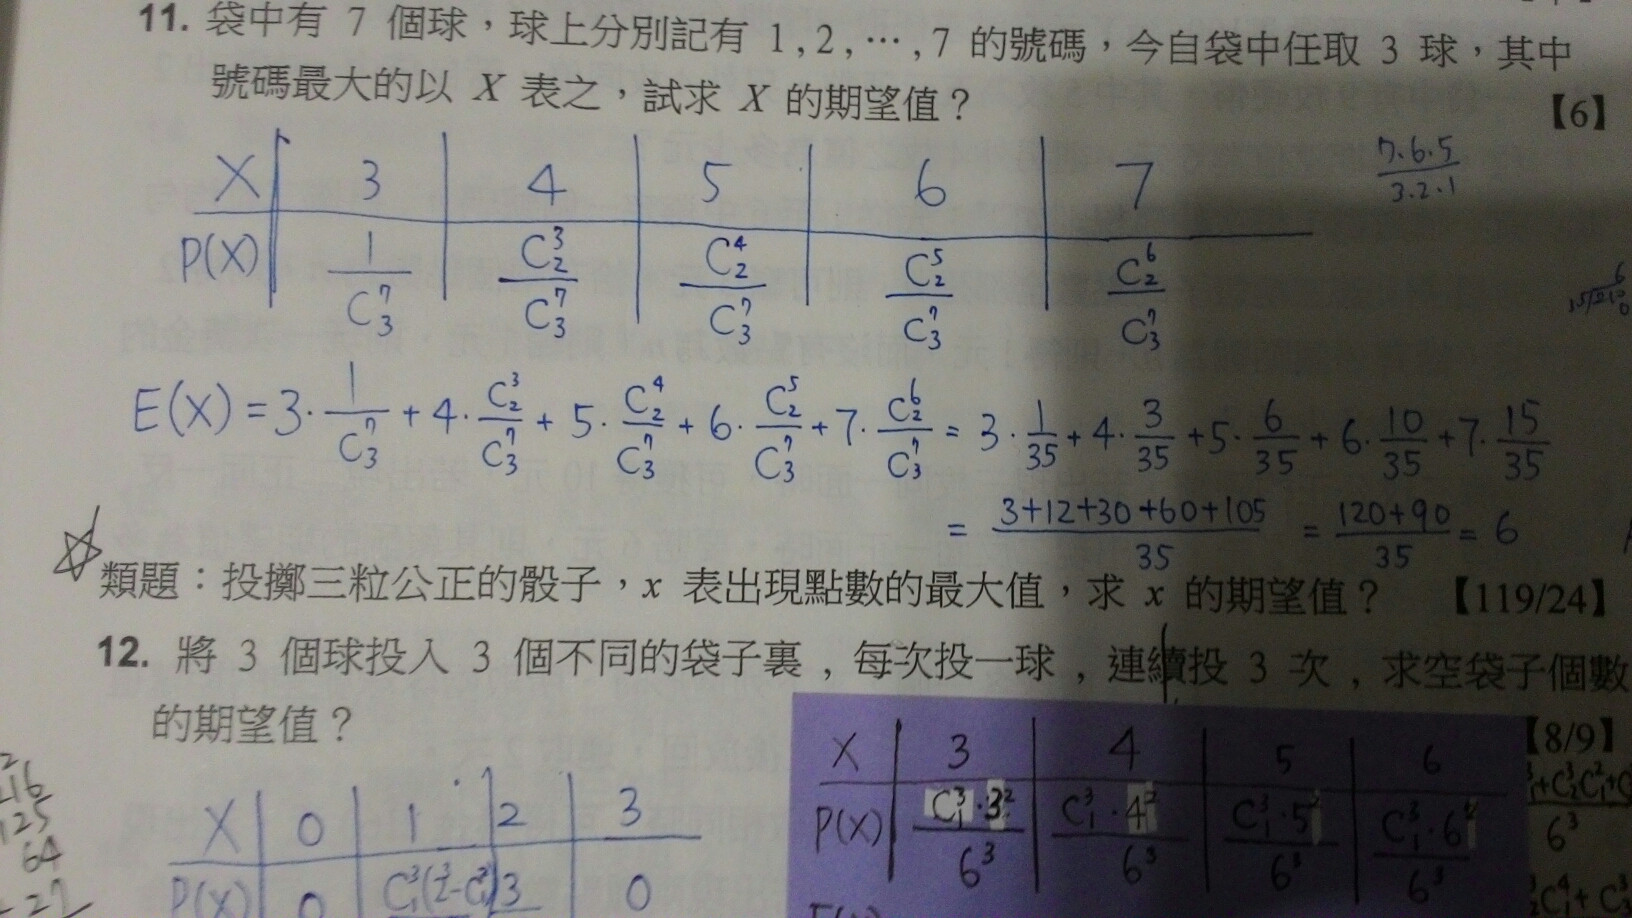 11. 袋中有 7 個球，球上分別記有 1 , 2 , … , 7 的號碼，今自袋中任取 3 球，其中
號碼最大的以 X 表之，試求 X 的期望值？ 【6】
7·6·5 / 3·2·1
X 3 4 5 6 7
P(X) 1/C⁷₃ C³₂/C⁷₃ C⁴₂/C⁷₃ C⁵₂/C⁷₃ C⁶₂/C⁷₃
E(X) = 3·1/C⁷₃ + 4·C³₂/C⁷₃ + 5·C⁴₂/C⁷₃ + 6·C⁵₂/C⁷₃ + 7·C⁶₂/C⁷₃ = 3·1/35 + 4·3/35 + 5·6/35 + 6·10/35 + 7·15/35
= (3+12+30+60+105)/35 = (120+90)/35 = 6
☆ 類題：投擲三粒公正的骰子，x 表出現點數的最大值，求 x 的期望值？ 【119/24】
12. 將 3 個球投入 3 個不同的袋子裏，每次投一球，連續投 3 次，求空袋子個數
的期望值？ 【8/9】
X 0 1 2 3
P(X) 0 3 0
X 3 4 5 6
P(X) C³₁·3²/6³ C³₁·4²/6³ C³₁·5²/6³ C³₁·6²/6³
216
125
64
27
6³